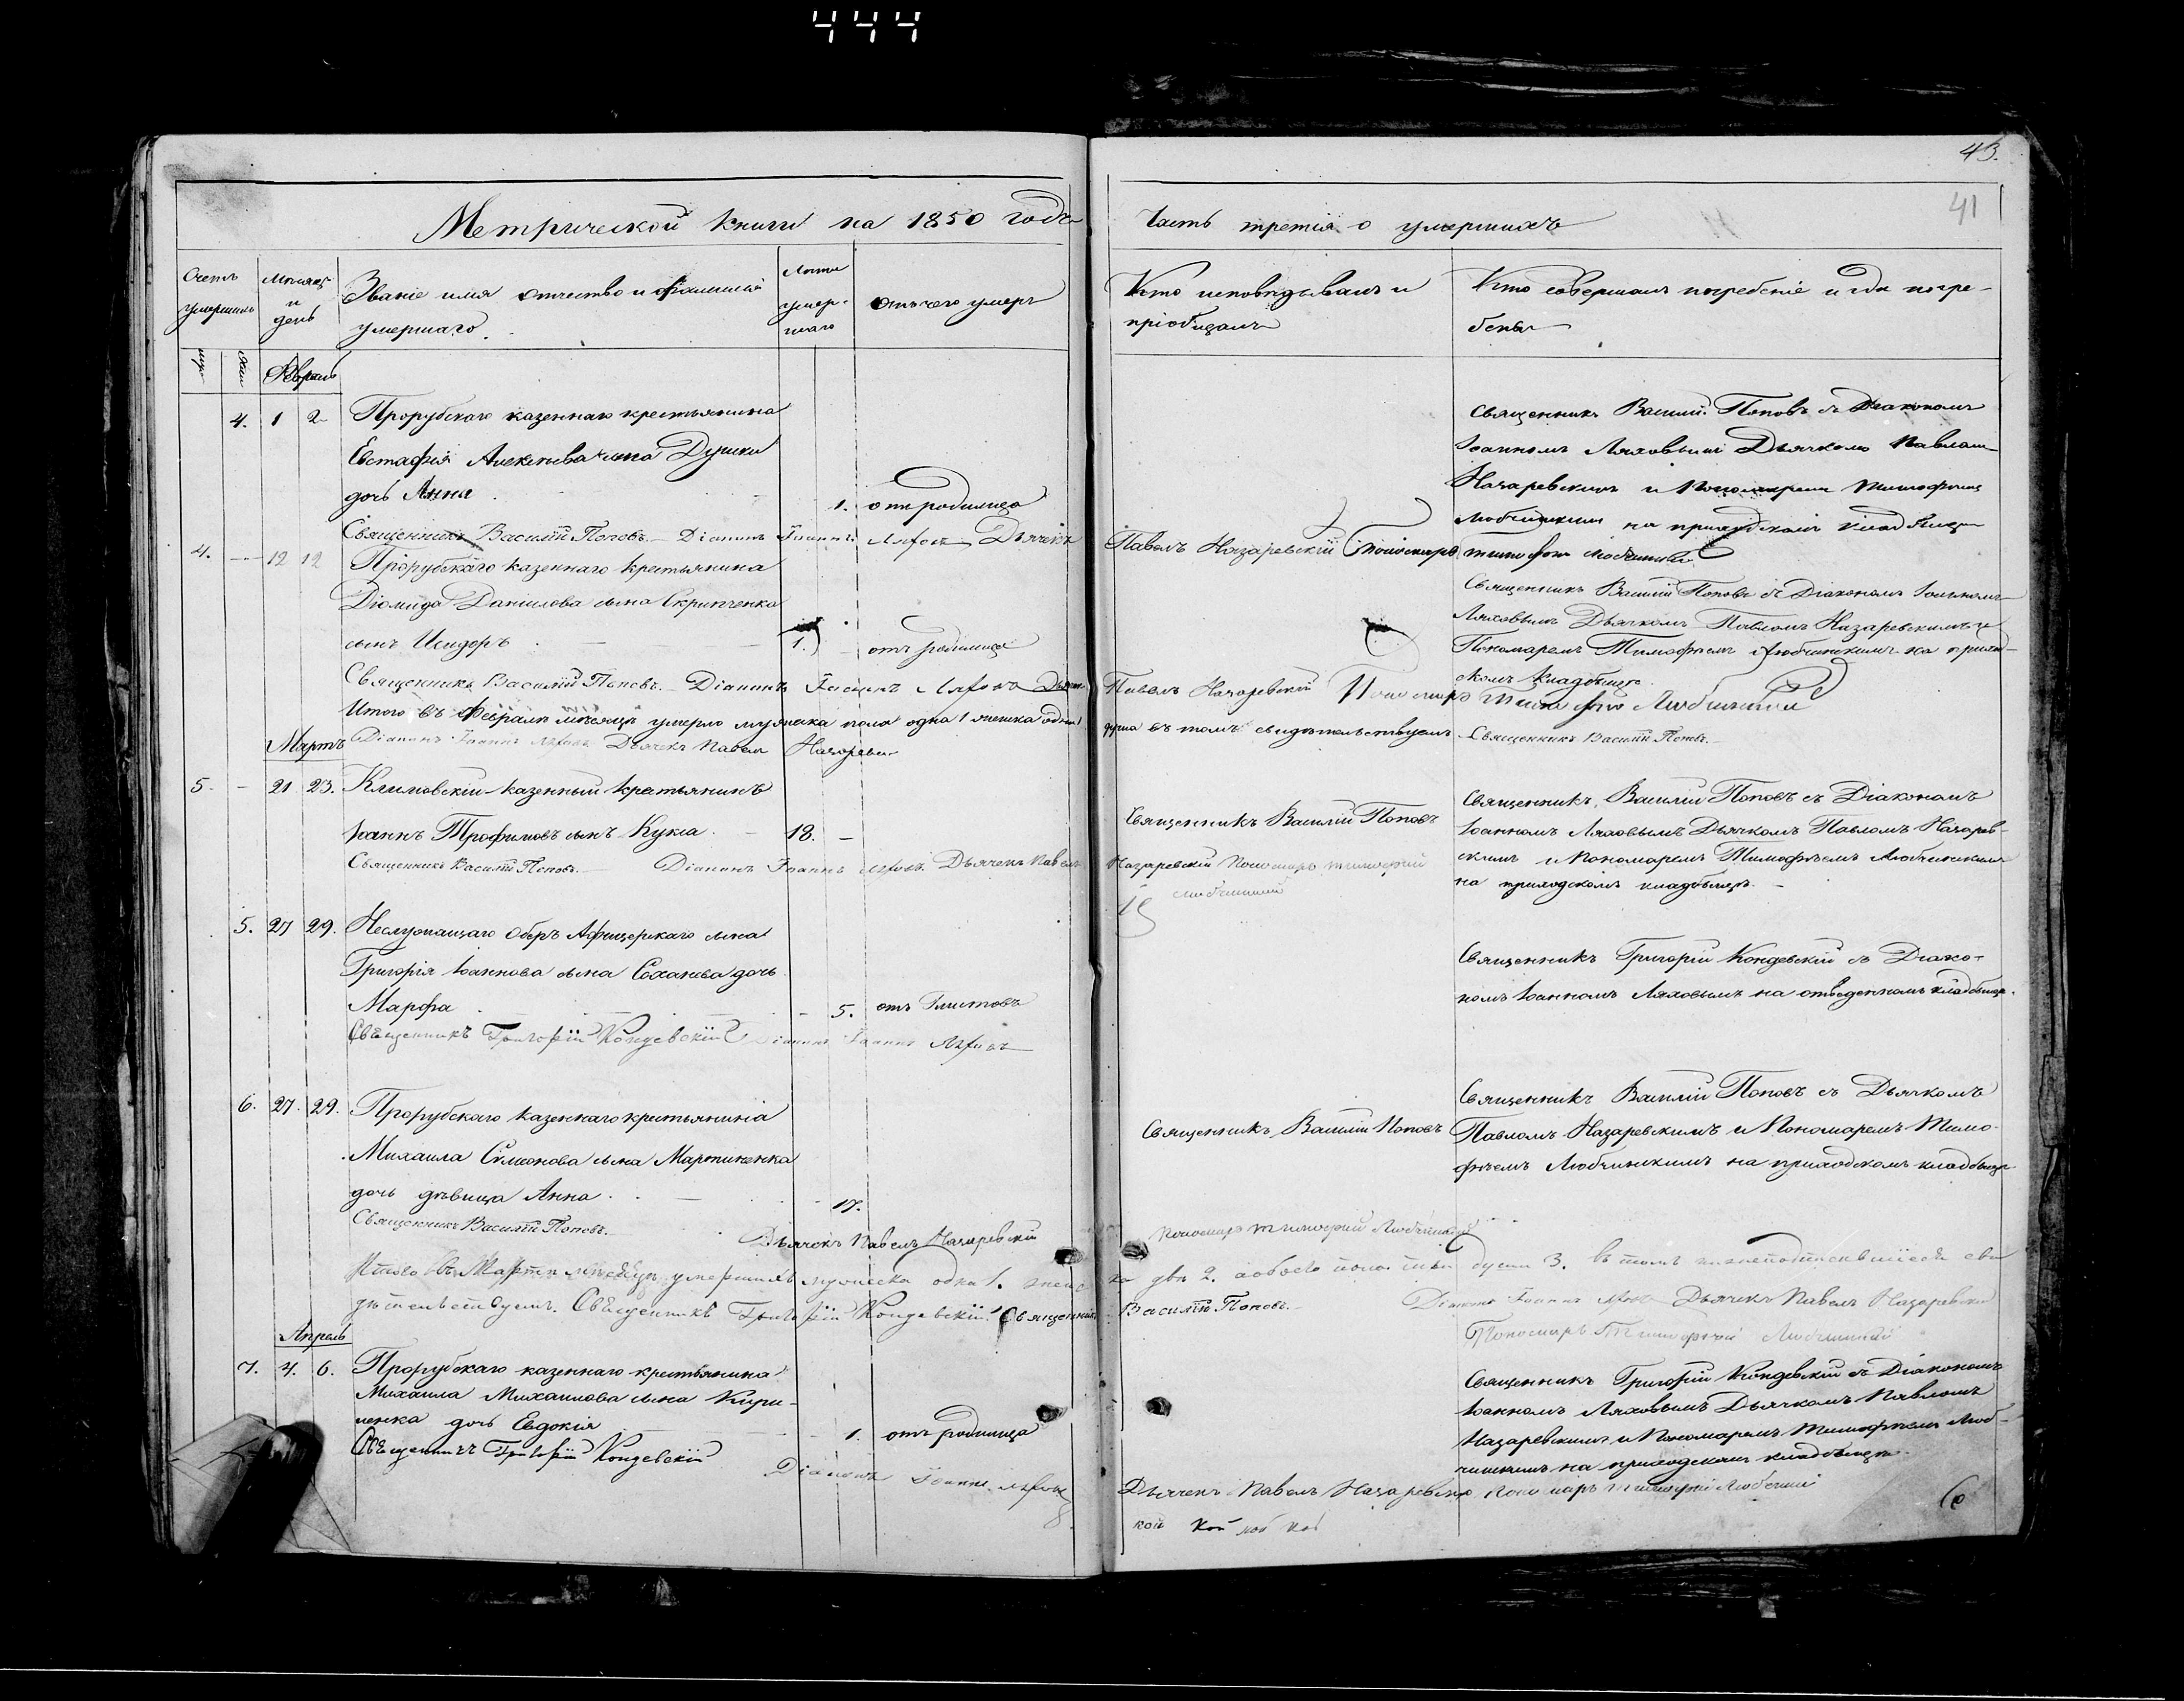 444
43.
41
Метрической книги на 1850 годъ
Часть третія о умершихъ
Счетъ умершихъ
Мѣсяцъ и день
Званіе имя отчество и фамилія умершаго.
Лѣта умершаго
Отъ чего умеръ
Кто исповѣдывалъ и пріобщалъ
Кто совершалъ погребеніе и гдѣ погребены
Февраль
4. 1 2
Прорубскаго казеннаго крестьянина
Евстафія Алексѣева сына Душки
дочь Анна
1. отъ родимца
Священникъ Василій Поповъ съ Діакономъ
Іоанномъ Ляховымъ Дьячкомъ Павломъ
Назаревскимъ и Пономаремъ Тимофѣемъ
на приходскомъ кладбищѣ
Священникъ Василій Поповъ. Діаконъ Іоаннъ Ляховъ Дьячекъ
Павелъ Назаревскій Пономарь Тимофей
4. — 12 12
Прорубскаго казеннаго крестьянина
Діомида Даніилова сына Скрипченка
сынъ Исидоръ
1. отъ родимца
Священникъ Василій Поповъ съ Діакономъ Іоанномъ
Ляховымъ Дьячкомъ Павломъ Назаревскимъ и
Пономаремъ Тимофѣемъ Любчинскимъ на приход-
скомъ кладбищѣ.
Священникъ Василій Поповъ. Діаконъ Іоаннъ Ляховъ
Павелъ Назаревскій Пономарь Тимофей
Итого въ Февралѣ мѣсяцѣ умерло мужеска пола одна 1 женска одна
душа въ томъ свидѣтельствуемъ Священникъ Василій Поповъ.
Діаконъ Іоаннъ Ляховъ Дьячекъ Павелъ
Мартъ
5. - 21 23.
Климовскій казенный крестьянинъ
Іоаннъ Трофимовъ сынъ Кукса
18. -
Священникъ Василій Поповъ
Священникъ Василій Поповъ съ Діакономъ
Іоанномъ Ляховымъ Дьячкомъ Павломъ Назарев-
скимъ и Пономаремъ Тимофѣемъ Любчинскимъ
на приходскомъ кладбищѣ.
Священникъ Василій Поповъ. Діаконъ Іоаннъ Ляховъ. Дьячекъ Павелъ
Назаревскій Пономарь Тимофей
5. 27 29.
Неслужащаго Оберъ Афицерскаго сына
Григорія Іоаннова сына дочь
Марфа
5. отъ Глистовъ
Священникъ Григорій Кондевскій съ Діако-
номъ Іоанномъ Ляховымъ на отведенномъ кладбищѣ.
Священникъ Григорій Кондевскій Діаконъ Іоаннъ Ляховъ
6. 27. 29.
Прорубскаго казеннаго крестьянина
Михаила Симеонова сына Мартиненка
дочь дѣвица Анна
17.
Священникъ Василій Поповъ
Священникъ Василій Поповъ съ Дьячкомъ
Павломъ Назаревскимъ и Пономаремъ Тимо-
фѣемъ Любчинскимъ на приходскомъ кладбищѣ
Священникъ Василій Поповъ.
Дьячекъ Павелъ Назаревскій
Пономарь Тимофей
Итого въ Мартѣ мѣсяцѣ умершихъ мужеска одна 1. женс-
ка двѣ 2. а обоего пола три души 3. въ томъ сви-
дѣтельствуемъ. Священникъ Григорій Кондевскій. Священникъ
Василій Поповъ.
Діаконъ Іоаннъ Ляховъ Дьячекъ Павелъ Назаревскій
Пономарь Тимофей
Апрель
7. 4. 6.
Прорубскаго казеннаго крестьянина
Михаила Михаилова сына Кири-
ленка дочь Евдокія
1. отъ родимца
Священникъ Григорій Кондевскій съ Діакономъ
Іоанномъ Ляховымъ Дьячкомъ Павломъ
Назаревскимъ и Пономаремъ Тимофѣемъ Люб-
чинскимъ на приходскомъ кладбищѣ.
Священникъ Григорій Кондевскій
Діаконъ Іоаннъ Ляховъ
Дьячекъ Павелъ Назаревскій Пономарь Тимофей